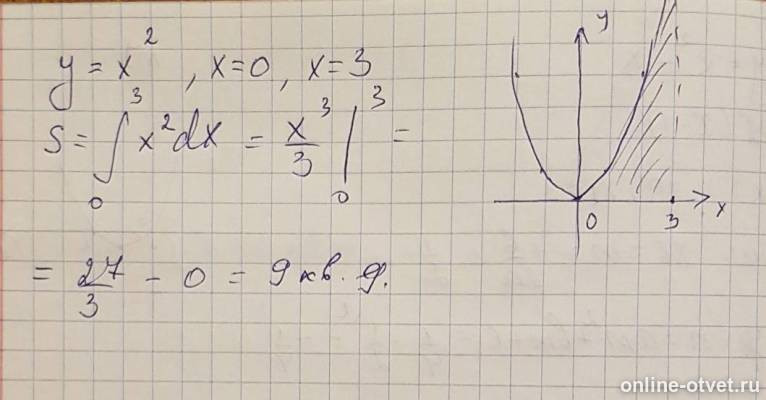 y = x², x=0, x=3
S = ∫₀³ x²dx = x³/3 |₀³ =
= 27/3 - 0 = 9 кв. ф.
y
0
3
x
online-otvet.ru